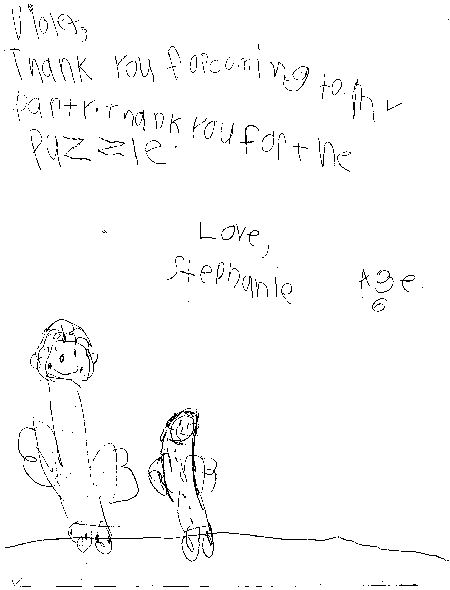 Violet,
Thank you for coming to my
party. Thank you for the
puzzle.
Love,
Stephanie Age
6